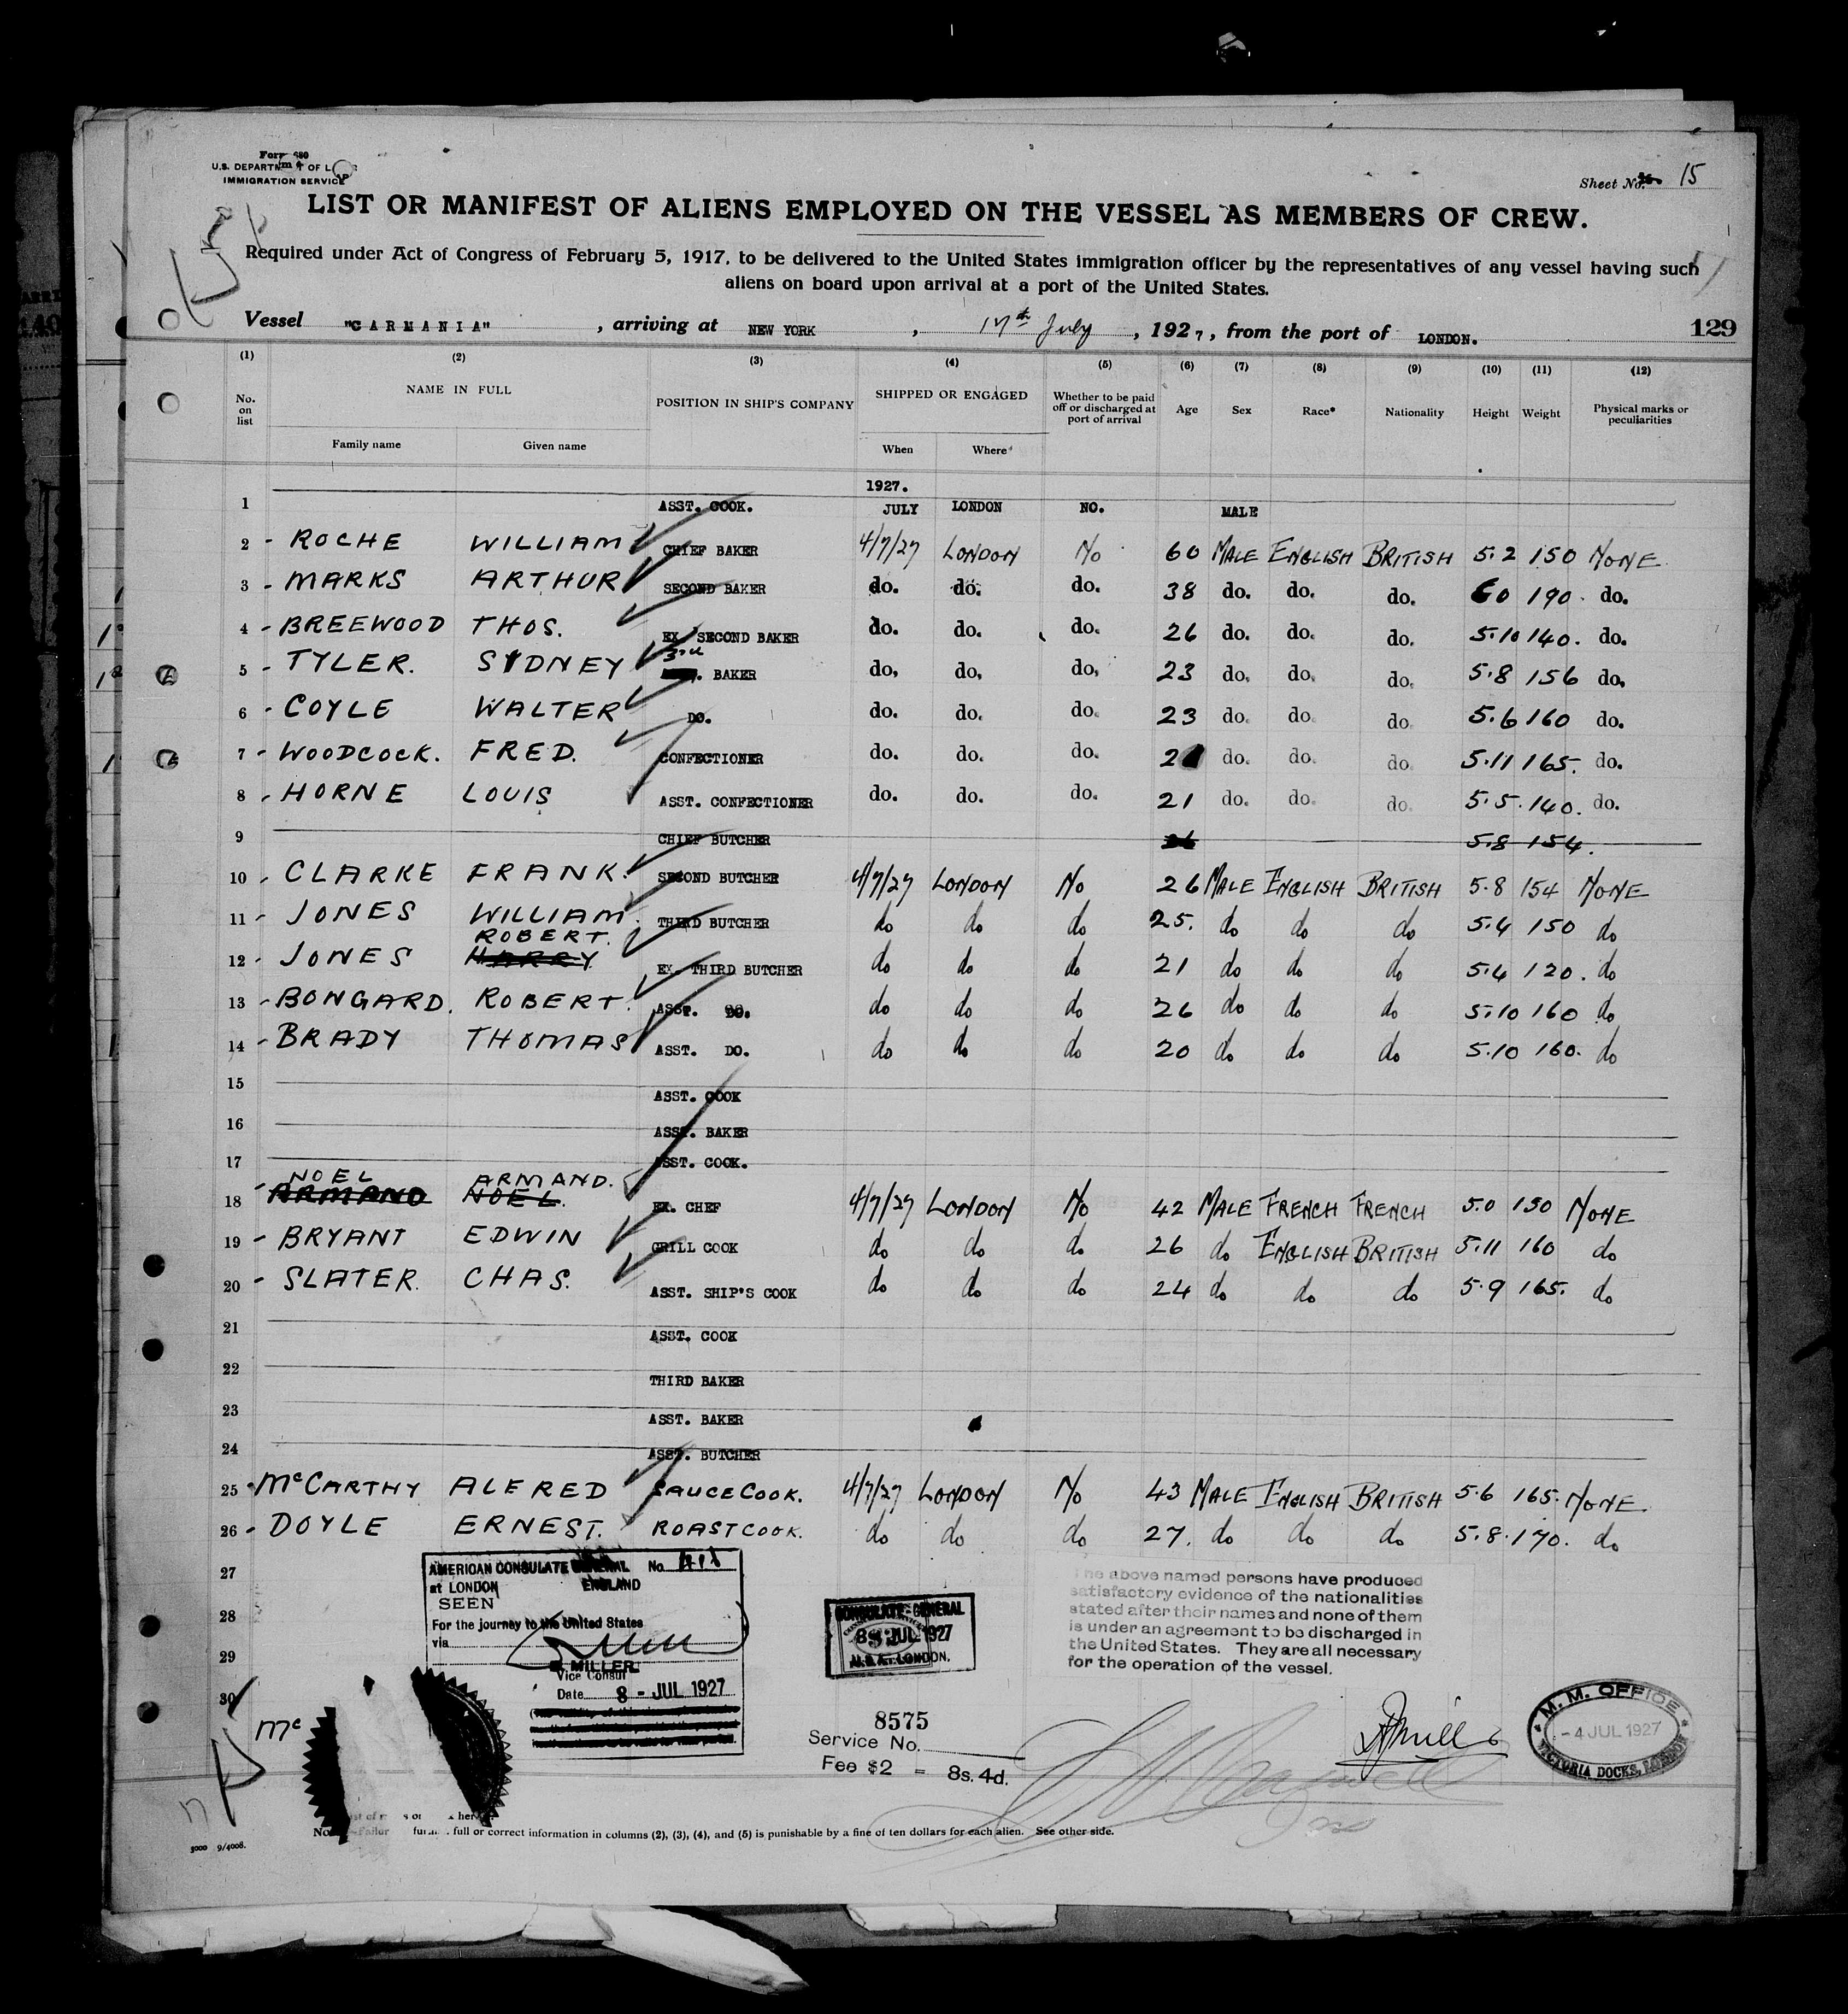 Form 680
U.S. DEPARTMENT OF L
IMMIGRATION SERVICE
Sheet No. 15
LIST OR MANIFEST OF ALIENS EMPLOYED ON THE VESSEL AS MEMBERS OF CREW.
Required under Act of Congress of February 5, 1917, to be delivered to the United States immigration officer by the representatives of any vessel having such
aliens on board upon arrival at a port of the United States.
Vessel "CARMANIA", arriving at NEW YORK, 17th July, 1927, from the port of LONDON. 129
(1) (2) (3) (4) (5) (6) (7) (8) (9) (10) (11) (12)
No. on list NAME IN FULL POSITION IN SHIP'S COMPANY SHIPPED OR ENGAGED Whether to be paid off or discharged at port of arrival Age Sex Race* Nationality Height Weight Physical marks or peculiarities
Family name Given name When Where
1927.
1 ASST. COOK. JULY LONDON NO. MALE
2 ROCHE WILLIAM CHIEF BAKER 4/7/27 LONDON No 60 MALE ENGLISH BRITISH 5.2 150 NONE
3 MARKS ARTHUR SECOND BAKER do. do. do. 38 do. do. do. 60 190 do.
4 BREEWOOD THOS. EX. SECOND BAKER do. do. do. 26 do. do. do. 5.10 140. do.
5 TYLER. SYDNEY 3rd BAKER do. do. do. 23 do. do. do. 5.8 156 do.
6 COYLE WALTER DO. do. do. do. 23 do. do. do. 5.6 160 do.
7 WOODCOCK. FRED. CONFECTIONER do. do. do. 2 do. do. do. 5.11 165. do.
8 HORNE LOUIS ASST. CONFECTIONER do. do. do. 21 do. do. do. 5.5. 140. do.
9 CHIEF BUTCHER 26 5.8 154.
10 CLARKE FRANK. SECOND BUTCHER 4/7/27 LONDON No 26 MALE ENGLISH BRITISH 5.8 154 NONE
11 JONES WILLIAM. THIRD BUTCHER do do do 25. do do do 5.4 150 do
ROBERT.
12 JONES HARRY EX. THIRD BUTCHER do do do 21 do do do 5.4 120. do
13 BONGARD. ROBERT. ASST. DO. do do do 26 do do do 5.10 160 do
14 BRADY THOMAS ASST. DO. do do do 20 do do do 5.10 160. do
15 ASST. COOK
16 ASST. BAKER
17 ASST. COOK.
NOEL ARMAND.
18 ARMAND NOEL. EX. CHEF 4/7/27 LONDON No 42 MALE FRENCH FRENCH 5.0 150 NONE
19 BRYANT EDWIN GRILL COOK do do do 26 do ENGLISH BRITISH 5.11 160 do
20 SLATER. CHAS. ASST. SHIP'S COOK do do do 24 do do do 5.9 165. do
21 ASST. COOK
22 THIRD BAKER
23 ASST. BAKER
24 ASST. BUTCHER
25 McCARTHY ALFRED SAUCE COOK. 4/7/27 LONDON No 43 MALE ENGLISH BRITISH 5.6 165. NONE.
26 DOYLE ERNEST. ROAST COOK. do do do 27. do do do 5.8. 170. do
27
28
29
30
AMERICAN CONSULATE GENERAL No.
at LONDON ENGLAND
SEEN
For the journey to the United States
via
MILLER
Vice Consul
Date 8 - JUL 1927
CONSULATE-GENERAL
8 JUL 1927
U.S.A. LONDON.
The above named persons have produced
satisfactory evidence of the nationalities
stated after their names and none of them
is under an agreement to be discharged in
the United States. They are all necessary
for the operation of the vessel.
Mc
8575
Service No.
Fee $2 = 8s. 4d.
M. M. OFFICE
-4 JUL 1927
VICTORIA DOCKS, LONDON
full or correct information in columns (2), (3), (4), and (5) is punishable by a fine of ten dollars for each alien. See other side.
5000 9/4008.